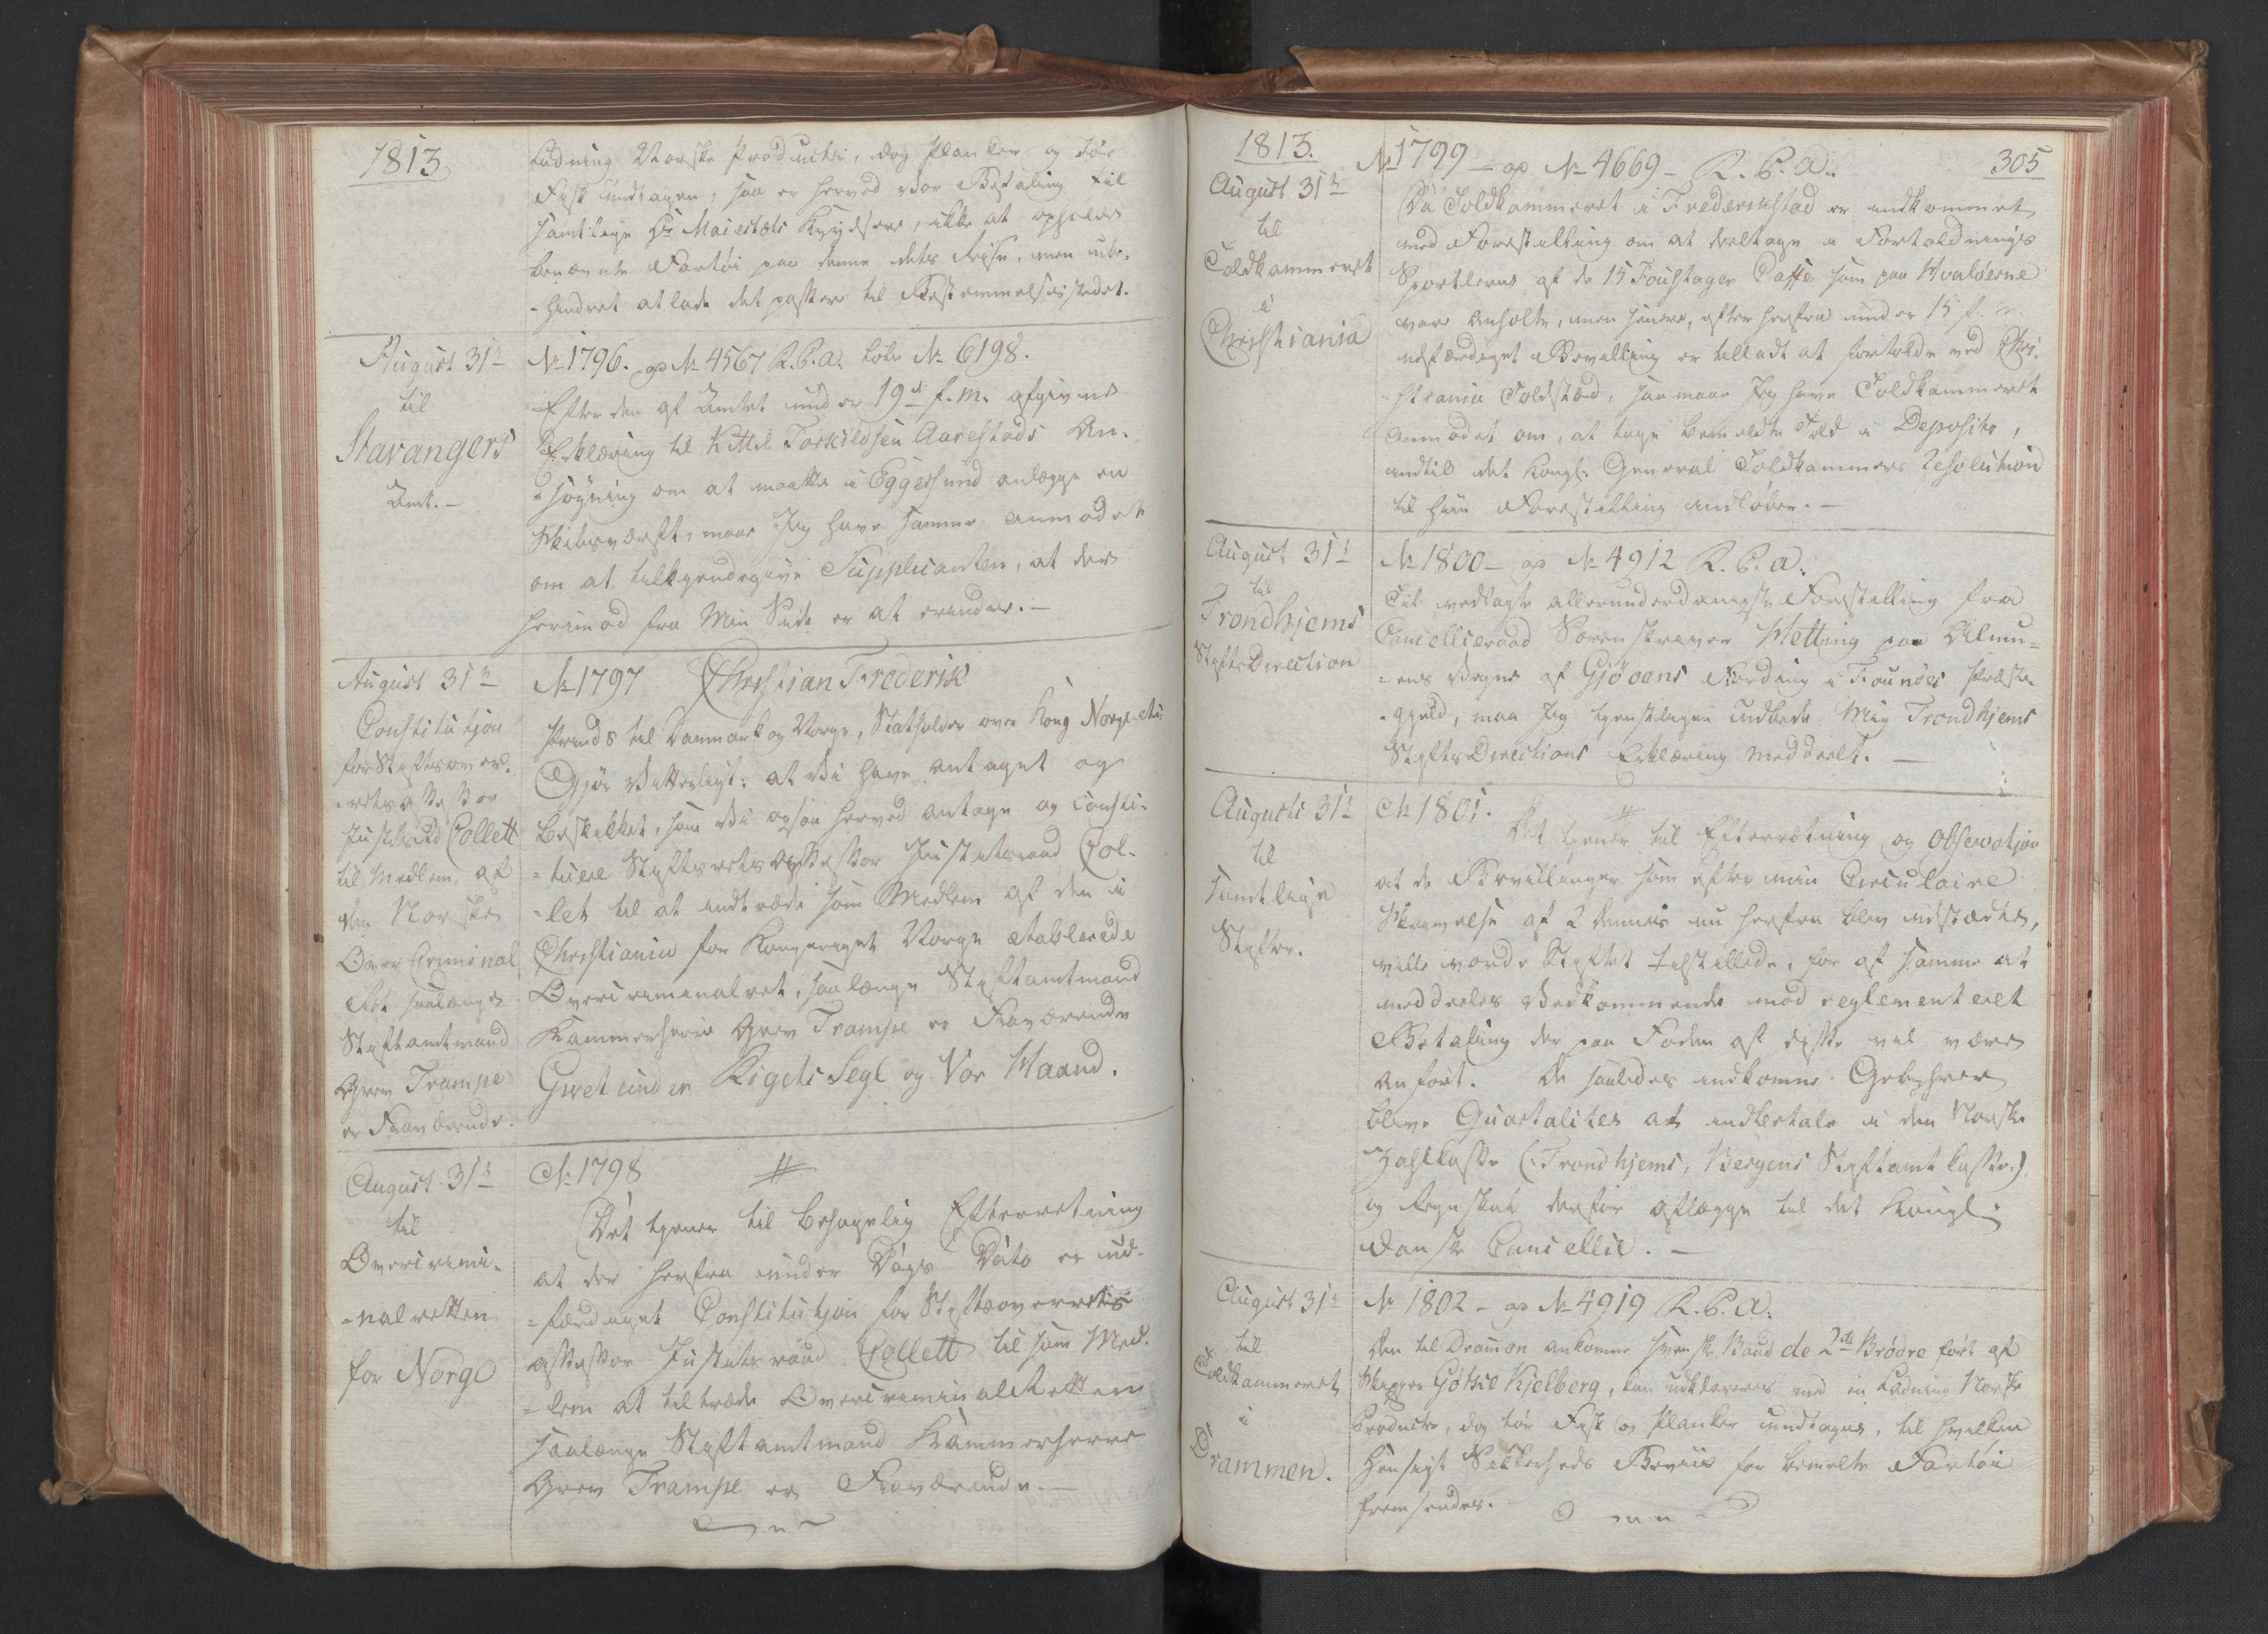 1813.
Ladning Norske Producter, dog Planker og tør
Fisk undtagen, saa er herved vor Befaling til
samtlige Hs Maiestæts Krydsere, ikke at opholde
benævnte Fartøi paa denne dets Reise, men ube-
-hindret at lade det passere til Bestemmelsesstedet.
August 31te
til
Stavangers
Amt. —
No 1796. ad No 4567 R. C. a. Løbe No 6198.
Efter den af Amtet under 19de f. m. afgivne
Erklæring til Kittel Torkildsen Aarestads An-
-søgning om at maatte i Eggersund anlægge en
Skibsværft, maae Jeg have samme anmodet
om at tilkjendegive Supplicanten, at der
herimod fra Min Side er at erindre. —
August 31te
Constitution
for Stiftsover-
-retsassessor
Justitsrd Collett
til Medlem af
den Norske
Over Criminal
Ret saalænge
Stiftamtmand
Grev Trampe
er Fraværende.
No 1797 Christian Frederik
Prinds til Danmark og Norge, Statholder over Kong Norge etc
Gjør Vitterligt: at Vi have antaget og
beskikket, som Vi ogsaa herved antage og consti-
-tuere Stiftsretsassessor Justitsraad Col-
-let til at indtræde som Medlem af den i
Christiania for Kongeriget Norge etablerede
Overcriminalret, saalænge Stiftamtmand
Kammerherre Grev Trampe er Fraværende
Givet under Rigets Segl og Vor Haand.
August 31te
til
Overcrimi-
-nalretten
for Norge
No 1798 #
Det tjener til behagelig Efterretning
at der herfra under Dags Dato er ud-
-færdiget Constitution for Stiftsoverrets
assessor Justitsraad Collett til som Med-
-lem at tiltræde OvercriminalRetten
saalænge Stiftamtmand Kammerherre
Grev Trampe er Fraværende. —
1813.
305
August 31te
til
Toldkammeret
i
Christiania
No 1799 — ad No 4669 — R. C. a.
Da Toldkammeret i Frederikstad er indkommet
med Forestilling om at deeltage i Fortoldnings
Sportlerne af de 15 Foustager Caffe som paa Hvaløerne
vare anholte, men senere, efter herfra under 15 f. M.
udfærdiget Bevilling er tilladt at fortolde ved Chri-
stiania Toldsted, saa maae Jeg have Toldkammeret
anmodet om, at tage bemeldte Told i Deposito,
indtil det Kongl. General Toldkammers Resolution
til hiin Forestilling indløber. —
August 31te
til
Trondhjems
StiftsDirection
No 1800 — ad No 4912 R. C. a.
Til vedlagte allerunderdanigste Forestilling fra
Cancellieraad Sorenskriver Hetting paa Almu-
-ens Vegne af Gjøvans Fierding i Præste-
-gjeld, maa Jeg tjenstligen udbede Mig Trondhjems
StiftsDirections Erklæring meddeelt. —
Augusts 31te
til
samtlige
Stifter.
No 1801. #
Det tjener til Efterretning og observation
at de Bevillinger som efter min Circulaire
Skrivelse af 2 dennes nu herfra blev udstædte,
ville vorde Stiftet tilstillede, for af samme at
meddeeles Vedkommende mod reglementeret
Betaling der paa Foden af disse vil være
anført. De saaledes indkomne Gebyhrer
blive Quartaliter at indbetale i den Norske
Zahlkasse (: Trondhjems, Bergens Stiftamtkasse:)
og Regnskab derfor aflægge til det Kongl:
danske Cancellie. —
August 31te
til
Toldkammeret
i
Drammen.
No 1802 — ad No 4919 R. C. a.
Den til Dramen ankomne svenske Baad de 2de Brødre ført af
Skipper Gøttie Kjelberg, kan udklareres med en Ladning Norske
Producter, dog tør Fisk og Planker undtagne, til hvilken
Hensigt Sikkerheds Beviis for bemelte Fartøi
fremsendes.